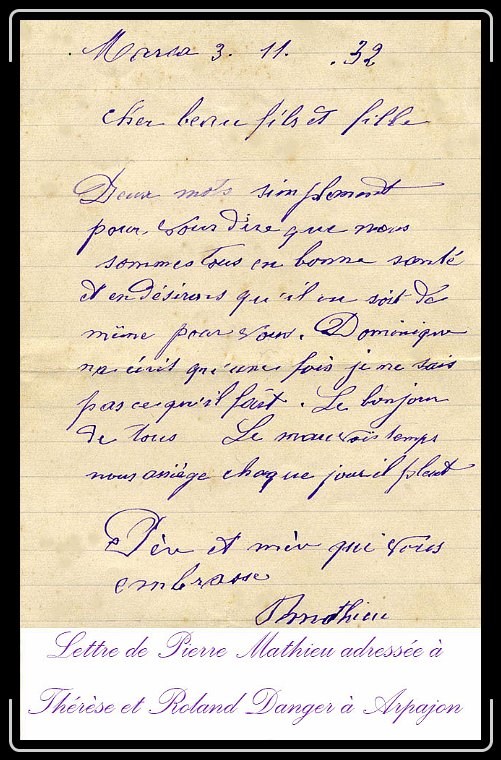 Marca 3. 11. .32
Cher beau fils et fille
Deux mots simplement
pour vous dire que nous
sommes tous en bonne santé
et en désirons qu'il en soit de
même pour vous. Dominique
na écrit qu'une fois je ne sais
pas ce qu'il fait. Le bonjour
de tous Le mauvais temps
nous assiège chaque jour il pleut
Père et mère qui vous
embrasse
Pmathieu
Lettre de Pierre Mathieu adressée à
Thérèse et Roland Danger à Arpajon